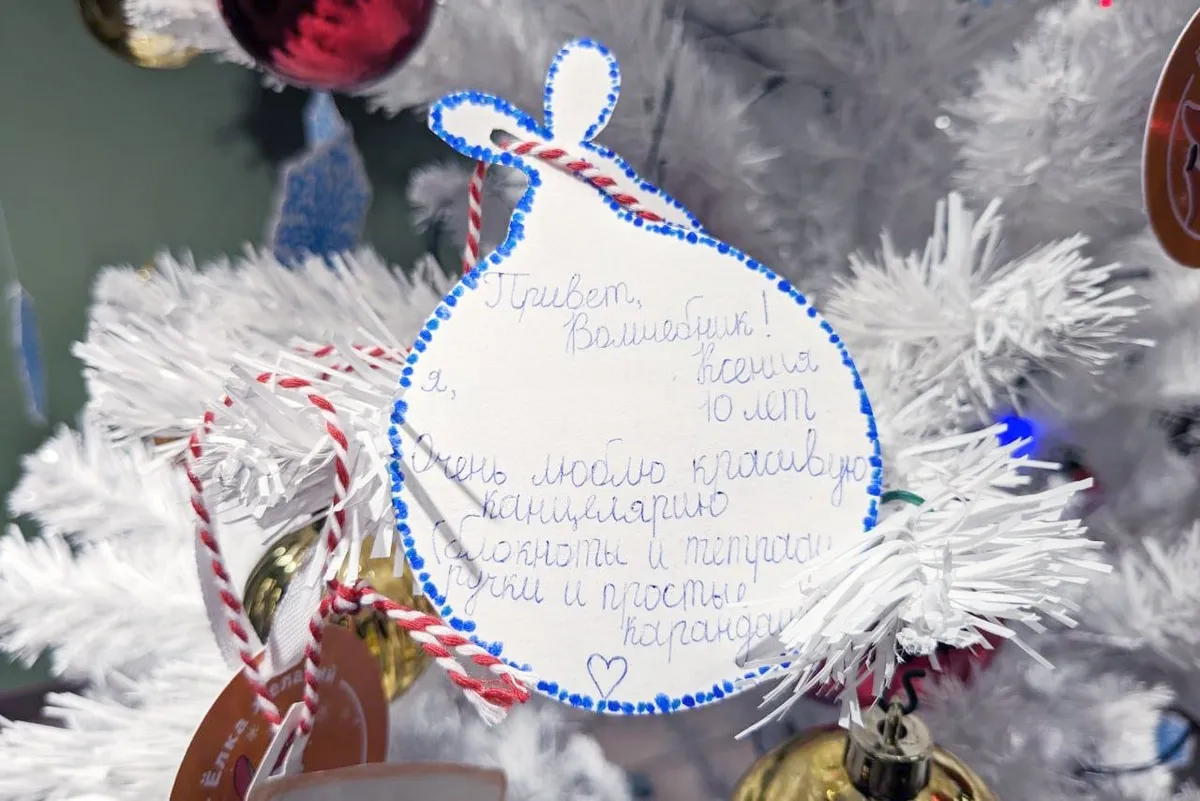 Привет,
Волшебник!
Ксения
я,
10 лет
Очень люблю красивую
канцелярию
(блокноты и тетради
ручки и простые
Ёлка